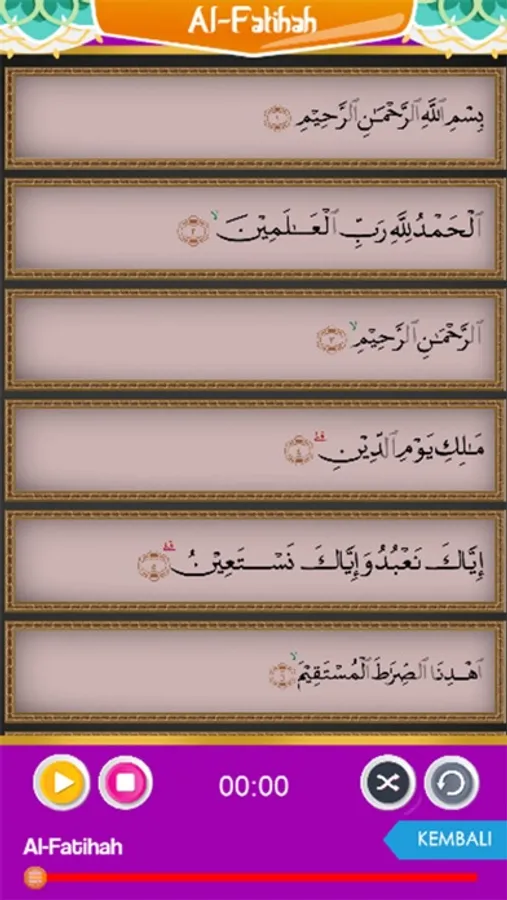 Al-Fatihah
بِسْمِ ٱللَّهِ ٱلرَّحْمَـٰنِ ٱلرَّحِيْمِ ١
ٱلْحَمْدُ لِلَّهِ رَبِّ ٱلْعَـٰلَمِيْنَ ۙ ٢
ٱلرَّحْمَـٰنِ ٱلرَّحِيْمِ ۙ ٣
مَـٰلِكِ يَوْمِ ٱلدِّيْنِ ۗ ٤
إِيَّاكَ نَعْبُدُ وَإِيَّاكَ نَسْتَعِيْنُ ۗ ٥
ٱهْدِنَا ٱلصِّرَٰطَ ٱلْمُسْتَقِيْمَ ۙ ٦
00:00
Al-Fatihah
KEMBALI